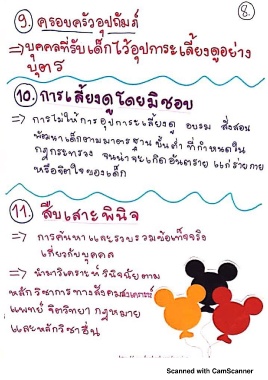 8.
9. ครอบครัวอุปถัมภ์
⇒ บุคคลที่รับเด็กไว้อุปการะเลี้ยงดูอย่าง
บุตร
10. การเลี้ยงดูโดยมิชอบ
⇒ การไม่ให้การอุปการะเลี้ยงดู อบรม สั่งสอน
พัฒนาเด็กตามมาตรฐานขั้นต่ำที่กำหนดใน
กฎกระทรวง จนน่าจะเกิดอันตรายแก่ร่างกาย
หรือจิตใจของเด็ก
11. สืบเสาะพินิจ
⇒ การค้นหาและรวบรวมข้อเท็จจริง
เกี่ยวกับบุคคล
⇒ นำมาวิเคราะห์วินิจฉัยตาม
หลักวิชาการทางสังคมสงเคราะห์
แพทย์ จิตวิทยา กฎหมาย
และหลักวิชาอื่น
Scanned with CamScanner